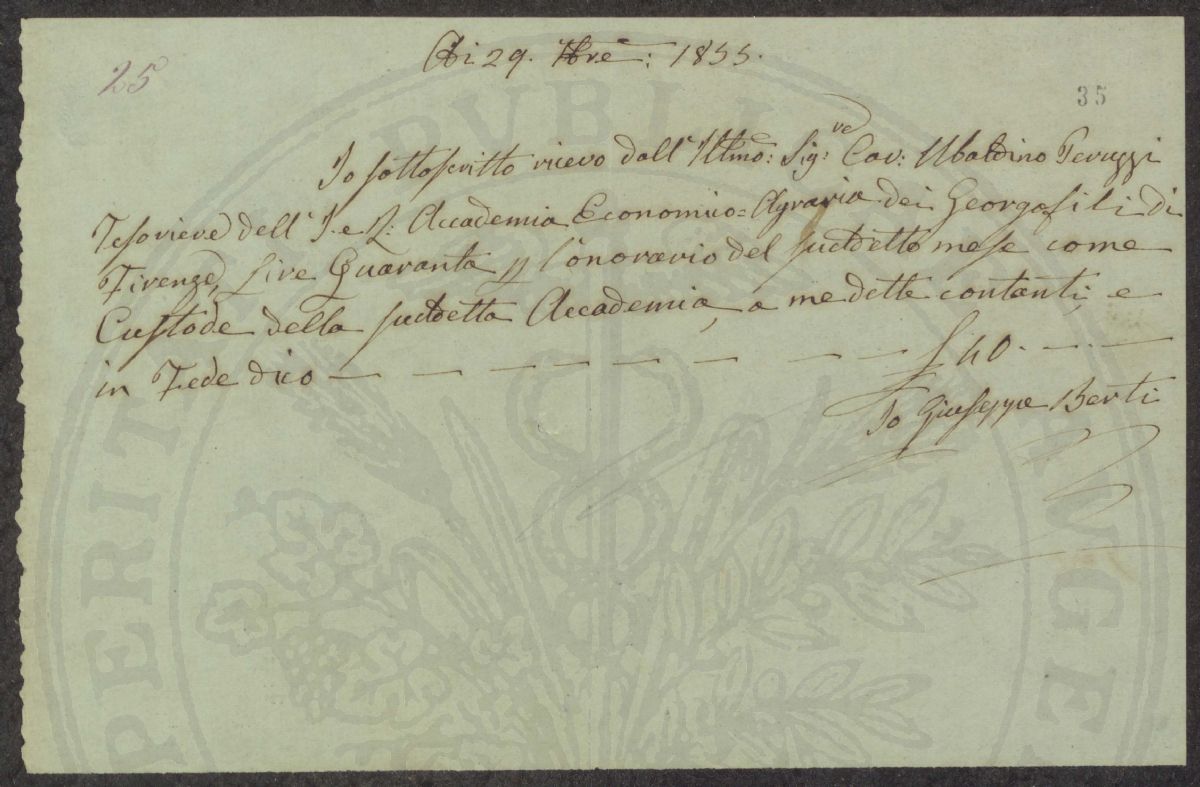 25
Adi 29. Xbre: 1855.
35
Io sottoscritto ricevo dall'Illmo: Sigre: Cav: Ubaldino Peruzzi
Tesoriere dell'I. e R: Accademia Economico=Agraria dei Georgofili di
Firenze, Lire Quaranta p l'onorario del suddetto mese come
Custode della suddetta Accademia, a me dette contanti, e
in Fede dico — — — — — — — — £ 40. — —
Io Giuseppe Berti
PERITA PUBLI AUGE